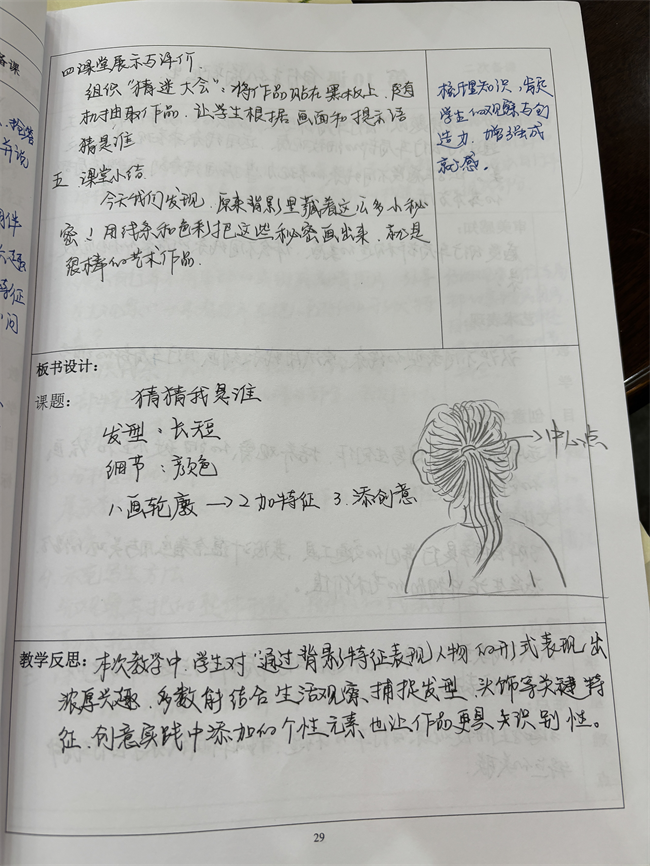 备课
四 课堂展示与评价.
组织“猜迷大会”:将作品贴在黑板上,随
机抽取作品,让学生根据画面和提示语
猜是谁
五 课堂小结
今天我们发现,原来背影里藏着这么多小秘
密!用线条和色彩把这些秘密画出来,就是
很棒的艺术作品.
梳理知识,肯定
学生的观察与创
造力,增强成
就感。
板书设计:
课题: 猜猜我是谁
发型:长短
细节:颜色
1.画轮廓→2加特征 3.添创意
→中心点
教学反思:本次教学中,学生对“通过背影特征表现人物的形式表现出
浓厚兴趣,多数能结合生活观察,捕捉发型、头饰等关键特
征,创意实践中添加的个性元素也让作品更具识别性。
29